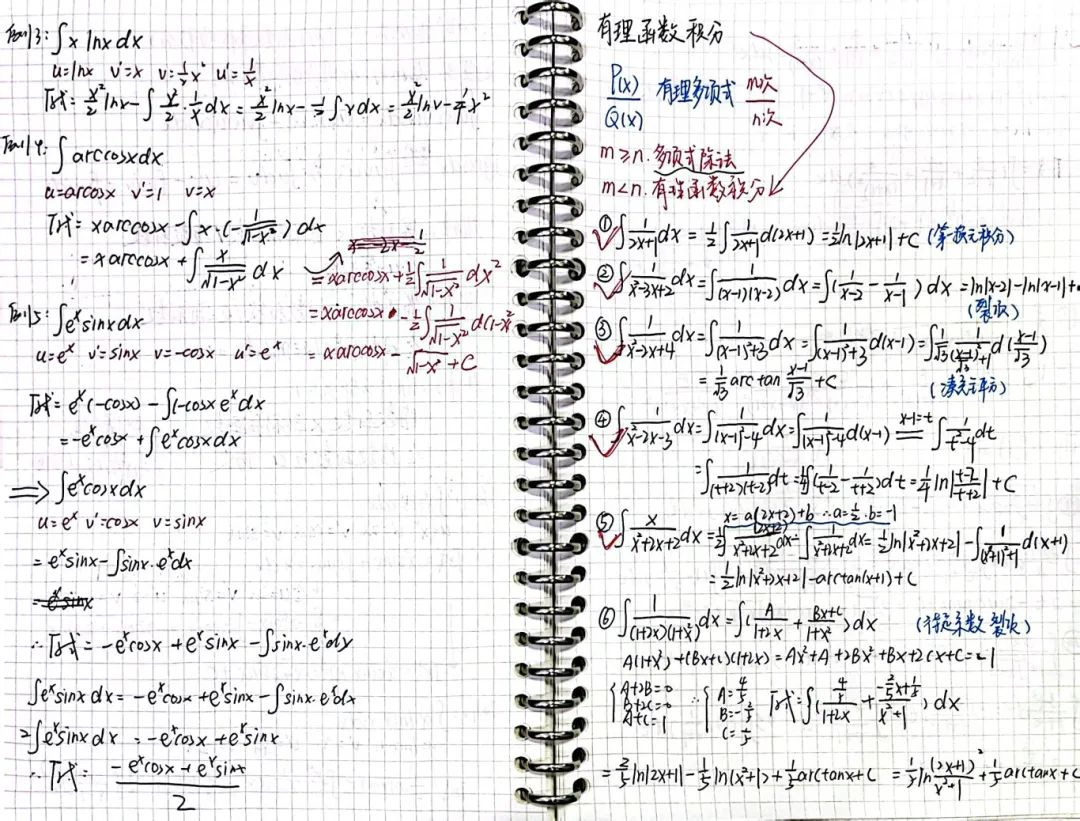 例3: ∫x lnx dx
u=lnx v'=x v=½x² u'=1/x
原式= x²/2 lnx - ∫ x²/2 · 1/x dx = x²/2 lnx - ½∫x dx = x²/2 lnx - ¼x²
例4: ∫arccosxdx
u=arcosx v'=1 v=x
原式= xarccosx - ∫x·(-1/√(1-x²)) dx
= xarccosx + ∫ x/√(1-x²) dx
= xarccosx + ½∫ 1/√(1-x²) dx²
= xarccosx - ½∫ 1/√(1-x²) d(1-x²)
= xarccosx - √(1-x²) + C
例5: ∫eˣsinxdx
u=eˣ v'=sinx v=-cosx u'=eˣ
原式= eˣ(-cosx) - ∫(-cosx eˣdx
= -eˣcosx + ∫eˣcosxdx
⟹ ∫eˣcosxdx
u=eˣ v'=cosx v=sinx
= eˣsinx - ∫sinx·eˣdx
= eˣsinx
∴原式= -eˣcosx + eˣsinx - ∫sinx·eˣdx
∫eˣsinx dx = -eˣcosx + eˣsinx - ∫sinx·eˣdx
2∫eˣsinx dx = -eˣcosx + eˣsinx
∴原式= (-eˣcosx + eˣsinx)/2
有理函数积分
P(x)/Q(x) 有理多项式 m次/n次
m≥n. 多项式除法
m<n. 有理函数积分
① ∫ 1/(2x+1) dx = ½∫ 1/(2x+1) d(2x+1) = ½ln|2x+1| + C (第一换元积分)
② ∫ 1/(x²-3x+2) dx = ∫ 1/((x-1)(x-2)) dx = ∫(1/(x-2) - 1/(x-1)) dx = ln|x-2| - ln|x-1| +
(裂项)
③ ∫ 1/(x²-2x+4) dx = ∫ 1/((x-1)²+3) dx = ∫ 1/((x-1)²+3) d(x-1) = ∫ 1/√3 · 1/(((x-1)/√3)²+1) d((x-1)/√3)
= 1/√3 arc tan (x-1)/√3 + C (凑完全平方)
④ ∫ 1/(x²-2x-3) dx = ∫ 1/((x-1)²-4) dx = ∫ 1/((x-1)²-4) d(x-1) x-1=t = ∫ 1/(t²-4) dt
= ∫ 1/((t+2)(t-2)) dt = ¼∫(1/(t-2) - 1/(t+2)) dt = ¼ ln|(t-2)/(t+2)| + C
x = a(2x+2)+b ∴a=½. b=-1
⑤ ∫ x/(x²+2x+2) dx = ½∫ (2x+2)/(x²+2x+2) dx - ∫ 1/(x²+2x+2) dx = ½ln|x²+2x+2| - ∫ 1/((x+1)²+1) d(x+1)
= ½ln|x²+2x+2| - arctan(x+1) + C
⑥ ∫ 1/((1+2x)(1+x²)) dx = ∫(A/(1+2x) + (Bx+C)/(1+x²)) dx (待定系数 裂项)
A(1+x²)+(Bx+C)(1+2x) = Ax²+A+2Bx²+Bx+2Cx+C = 1
{A+2B=0 B+2C=0 A+C=1 ∴{A=4/5 B=-2/5 C=1/5 原式=∫((4/5)/(1+2x) + (-2/5x+1/5)/(x²+1)) dx
= 2/5 ln|2x+1| - 1/5 ln(x²+1) + 1/5 arctanx + C = 1/5 ln (2x+1)²/(x²+1) + 1/5 arctanx + C